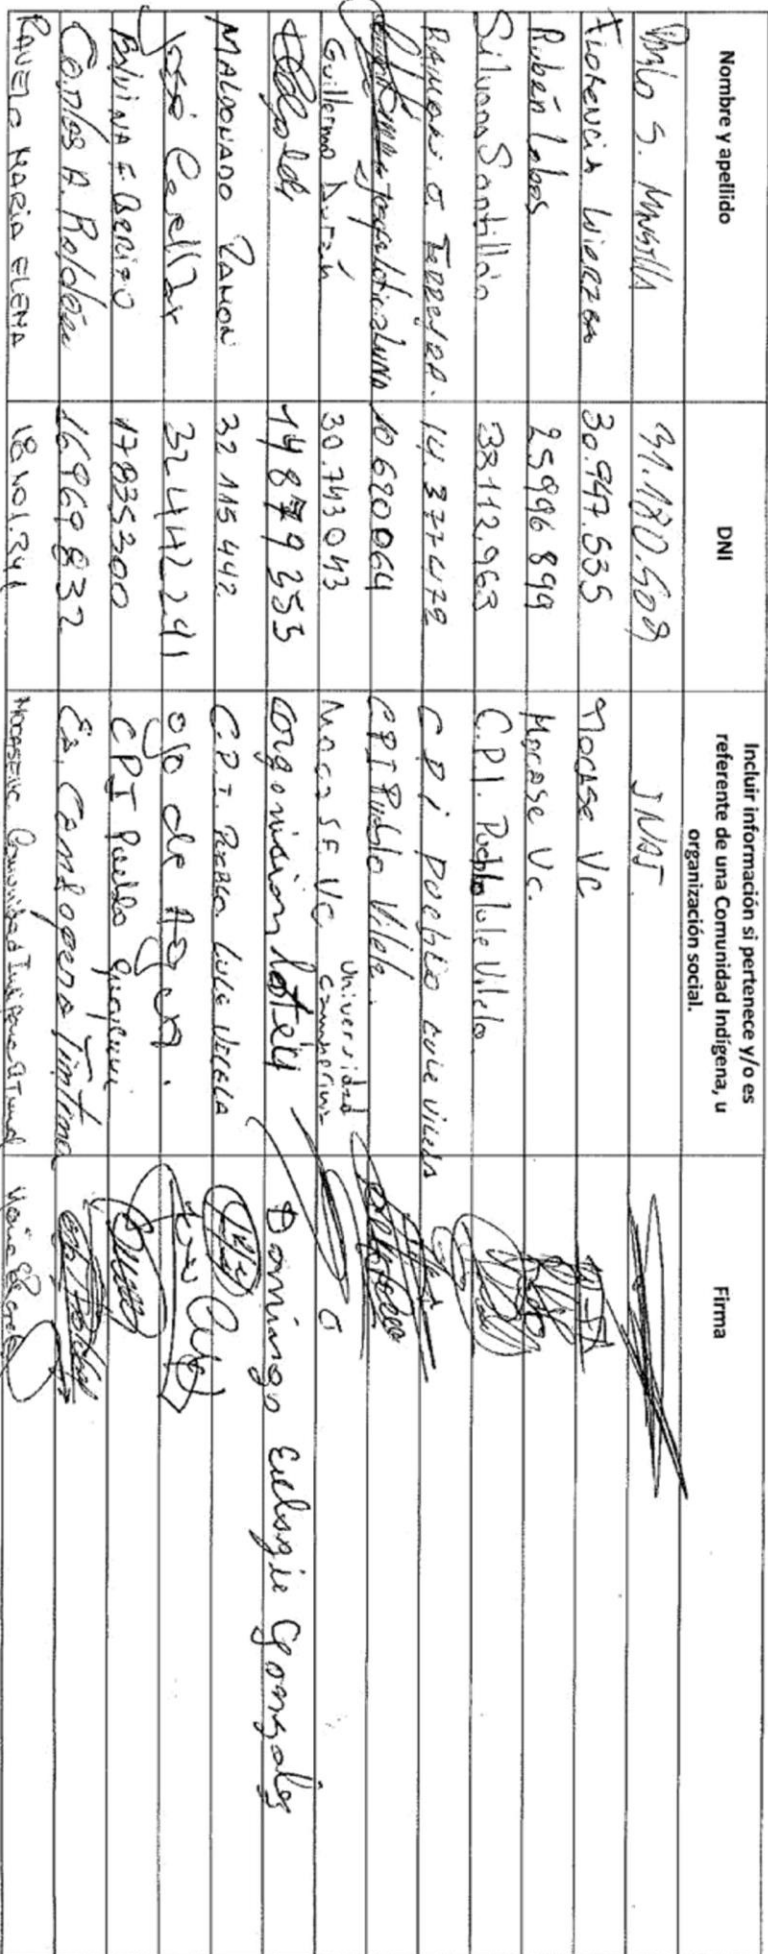 Nombre y apellido DNI Incluir información si pertenece y/o es
referente de una Comunidad Indígena, u
organización social. Firma
Pablo S. Mansilla 31.180.509 INAI
Florencia Wiorzea 30.947.535 Mocase VC
Rubén Lobos 25996899 Mocase Vc.
Silvana Santillán 38112.963 C.P.I. Pueblo Lule Vilela
RAMON. O FERREYRA. 14.377472 C P i Pueblo Lule Vilela
LUNA 10620064 C P I Pueblo Vilela.
Guillermo Durán 30.743043 Mocase VC Universidad
campesina
14879353 Domingo Eulogio Gonzales
MALDONADO RAMON 32115442 C.P.I. Pueblo LULE VILELA
José Cuellar 32442241 ojo de Agua.
17835300 CPI Pueblo
Carlos A. Roldán 16969832
RAVELO MARIA ELENA 18401.341 MOCASE VC Comunidad Indígena